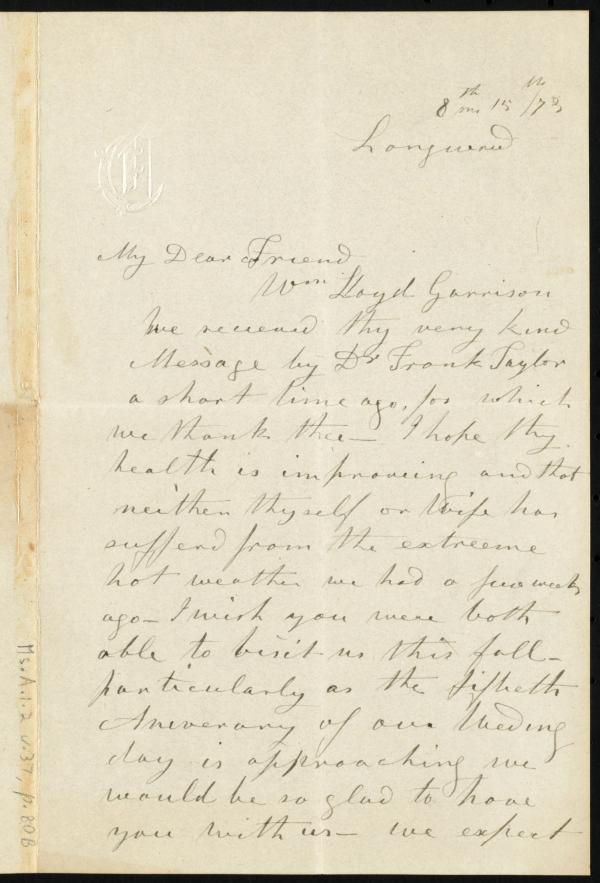 8th mo 15th /73
Longwood
My Dear Friend
Wm Lloyd Garrison
We receved thy very kind
Message by Dr Frank Taylor
a short time ago, for which
we thank thee— I hope thy
health is improveing and that
neither thyself or Wife has
sufferd from the extreeme
hot weather we had a few weeks
ago— I wish you were both
able to visit us this fall—
particularly as the fiftieth
Aniverary of our Weding
day is approaching we
would be so glad to have
you with us— we expect
Ms.A.1.2 v.37, p.80B